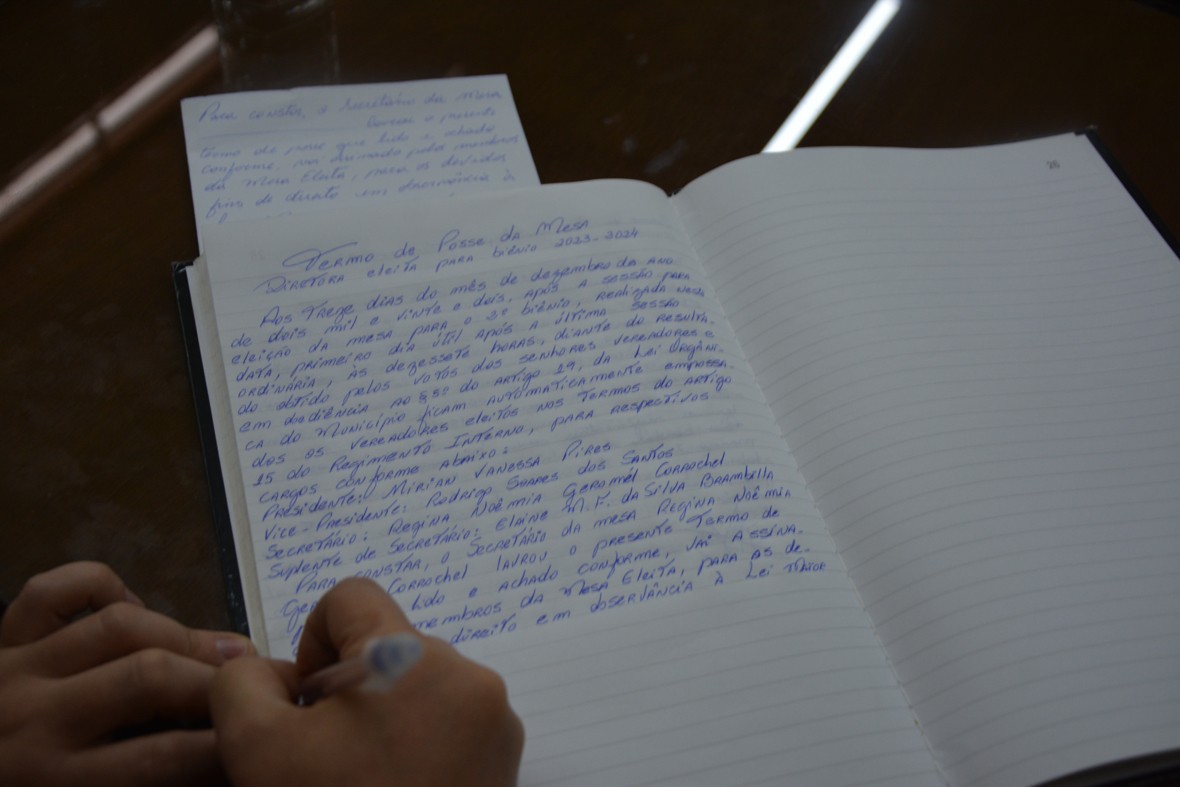 Para constar, o Secretário da Mesa
lavrou o presente
termo de posse que lido e achado
conforme, vai assinado pelos membros
da Mesa Eleita, para os devidos
fins de direito em observância à
26
Termo de Posse da Mesa
Diretora eleita para biênio 2023-2024
Aos treze dias do mês de dezembro do ano
de dois mil e vinte e dois, após a sessão para
eleição da mesa para o 2º biênio, realizada nesta
data, primeiro dia útil após a última sessão
ordinária, às dezessete horas, diante do resulta-
do obtido pelos votos dos senhores vereadores e
em obediência ao § 5º do artigo 19, da Lei Orgâni-
ca do Município ficam automaticamente empossa-
dos os vereadores eleitos nos termos do artigo
15 do Regimento Interno, para respectivos
cargos conforme abaixo:
Presidente: Mirian Vanessa Pires
Vice-Presidente: Rodrigo Soares dos Santos
Secretário: Regina Noêmia Geromél Corrochel
Suplente de Secretário: Elaine M. F. da Silva Brambilla
Para constar, o Secretário da mesa Regina Noêmia
Corrochel lavrou o presente termo de
lido e achado conforme, vai assina-
membros da Mesa Eleita, para os de-
direito em observância à Lei Maior